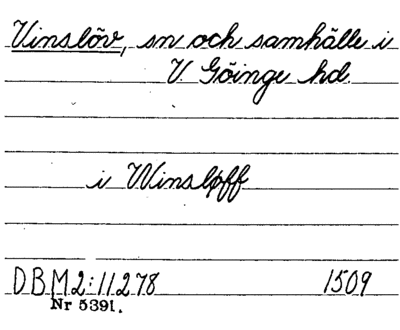 Vinslöv, sn och samhälle i
V Göinge hd
i Winsløff
DBM2:11278 1509
Nr 5391.